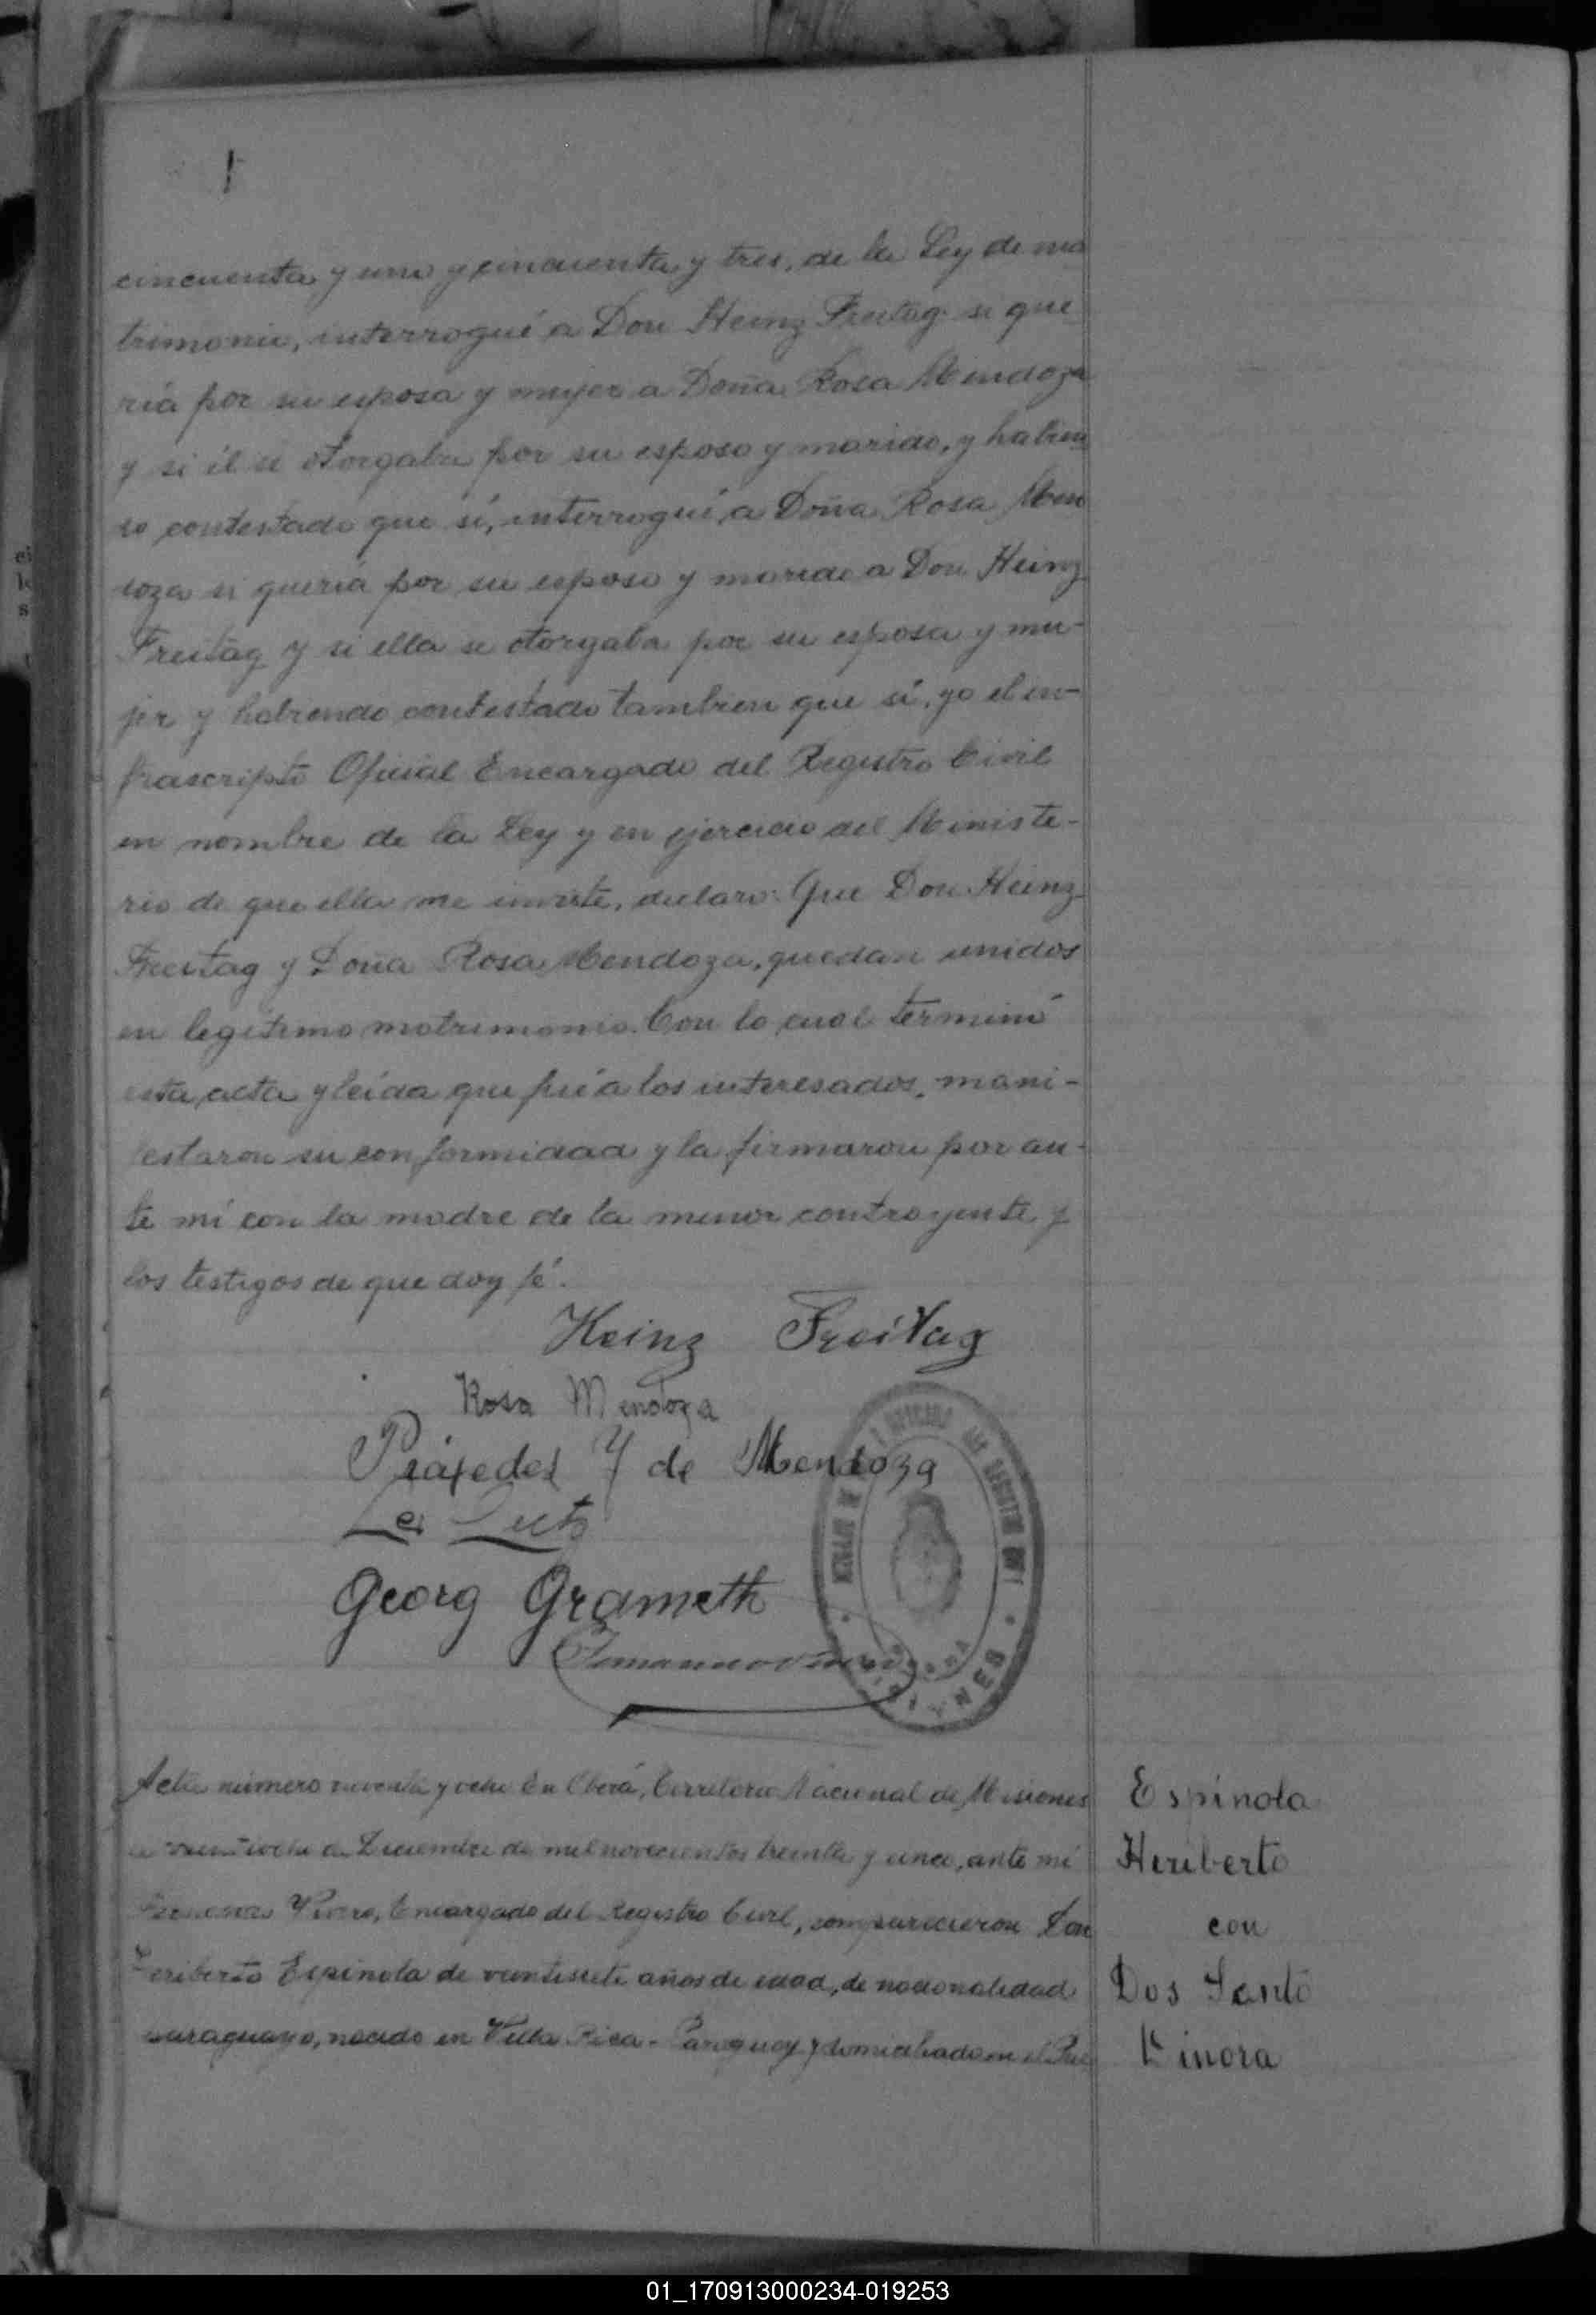 cincuenta y uno y cincuenta y tres, de la Ley de ma
trimonio, interrogué a Don Heinz Freitag si que
ría por su esposa y mujer a Doña Rosa Mendoza
y si él se otorgaba por su esposo y marido, y habien
do contestado que sí, interrogué a Doña Rosa Men
doza si quería por su esposo y marido a Don Heinz
Freitag y si ella se otorgaba por su esposa y mu-
jer y habiendo contestado tambien que sí, yo el in-
frascripto Oficial Encargado del Registro Civil
en nombre de la Ley y en ejercicio del Ministe-
rio de que ella me inviste, declaro: Que Don Heinz
Freitag y Doña Rosa Mendoza, quedan unidos
en legítimo matrimonio. Con lo cual terminó
esta acta y leída que fué a los interesados, mani-
festaron su conformidad y la firmaron por an-
te mí con la madre de la menor contrayente y
los testigos de que doy fé.
Heinz Freitag
Rosa Mendoza
Práxedes Y de Mendoza
Georg Grameth
OFICINA DEL REGISTRO CIVIL
MISIONES
Acta número noventa y ocho En Oberá, Territorio Nacional de Misiones
a veintiocho de Diciembre de mil novecientos treinta y uno, ante mí
Encargado del Registro Civil, comparecieron Don
Heriberto Espinola de veintisiete años de edad, de nacionalidad
paraguayo, nacido en Villa Rica - Paraguay y domiciliado en el Pue
Espínola
Heriberto
con
Dos Santo